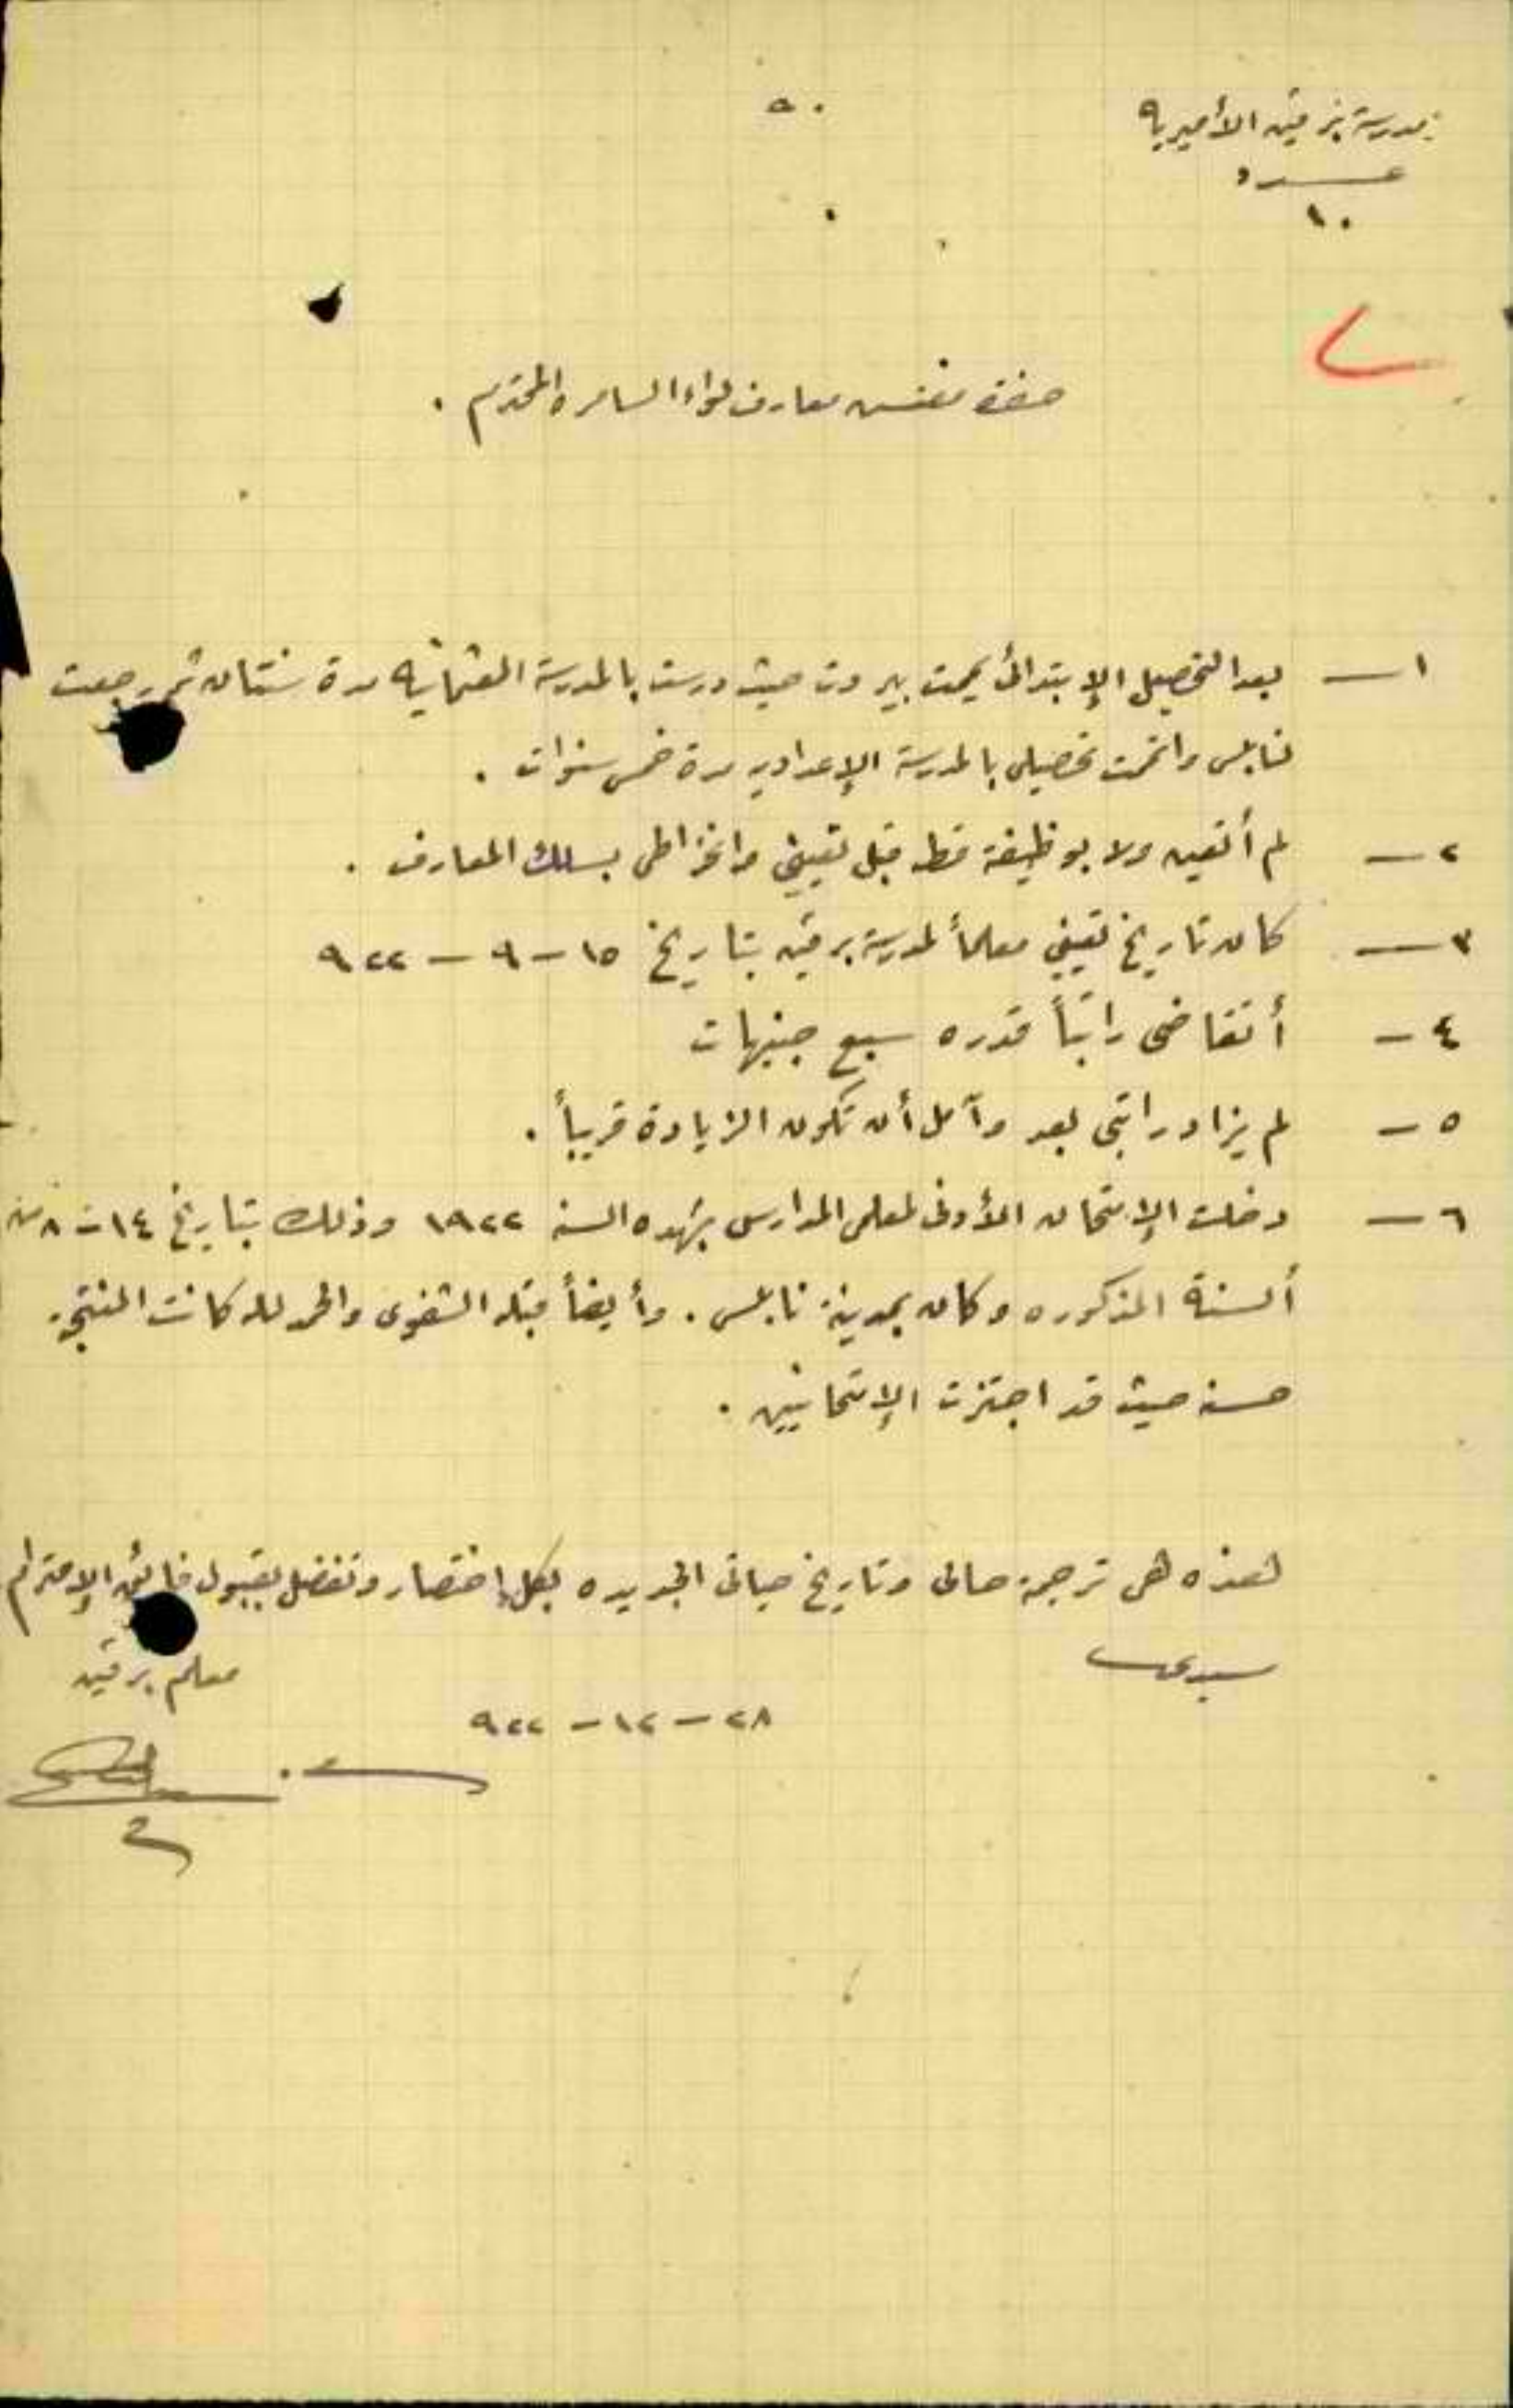 مدرسة برقين الأميريه
عدد
١٠
٥٠
حضرة مفتش معارف لواء السامره المحترم .
١ — بعد التحصيل الإبتدائي يممت بيروت حيث درست بالمدرسة العثمانيه مدة سنتان ثم رجعت
لنابلس واتممت تحصيلي بالمدرسة الإعداديه مدة خمس سنوات .
٢ — لم أتعين ولا بوظيفة قط قبل تعييني وانخراطي بسلك المعارف .
٣ — كان تاريخ تعييني معلماً لمدرسة برقين بتاريخ ١٥ – ٩ – ٩٢٢
٤ – أتقاضى راتباً قدره سبع جنيهات
٥ – لم يزاد راتبي بعد وآمل أن تكون الزيادة قريباً .
٦ – دخلت الإمتحان الأدنى لمعلمي المدارس بهذه السنه ١٩٢٢ وذلك بتاريخ ١٤ – ٨ من
ألسنة المذكوره وكان بمدينة نابلس . وأيضاً قبله الشفوي والحمد لله كانت النتيجه
حسنه حيث قد اجتزت الإمتحانين .
هذه هي ترجمة حالي وتاريخ حياتي الجديده بكل إختصار وتفضل بقبول فائق الإحترام
سيدي
معلم برقين
٢٨ – ١٢ – ٩٢٢